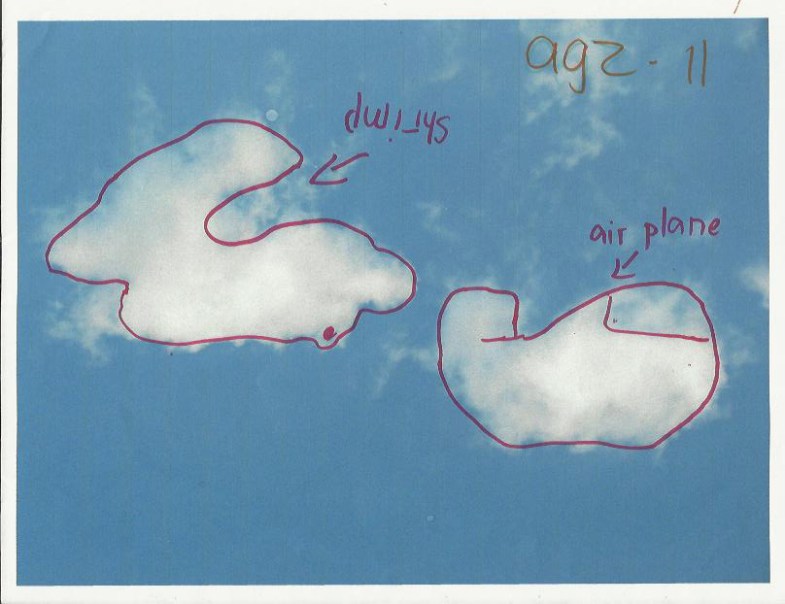 agz - 11
shrimp
air plane